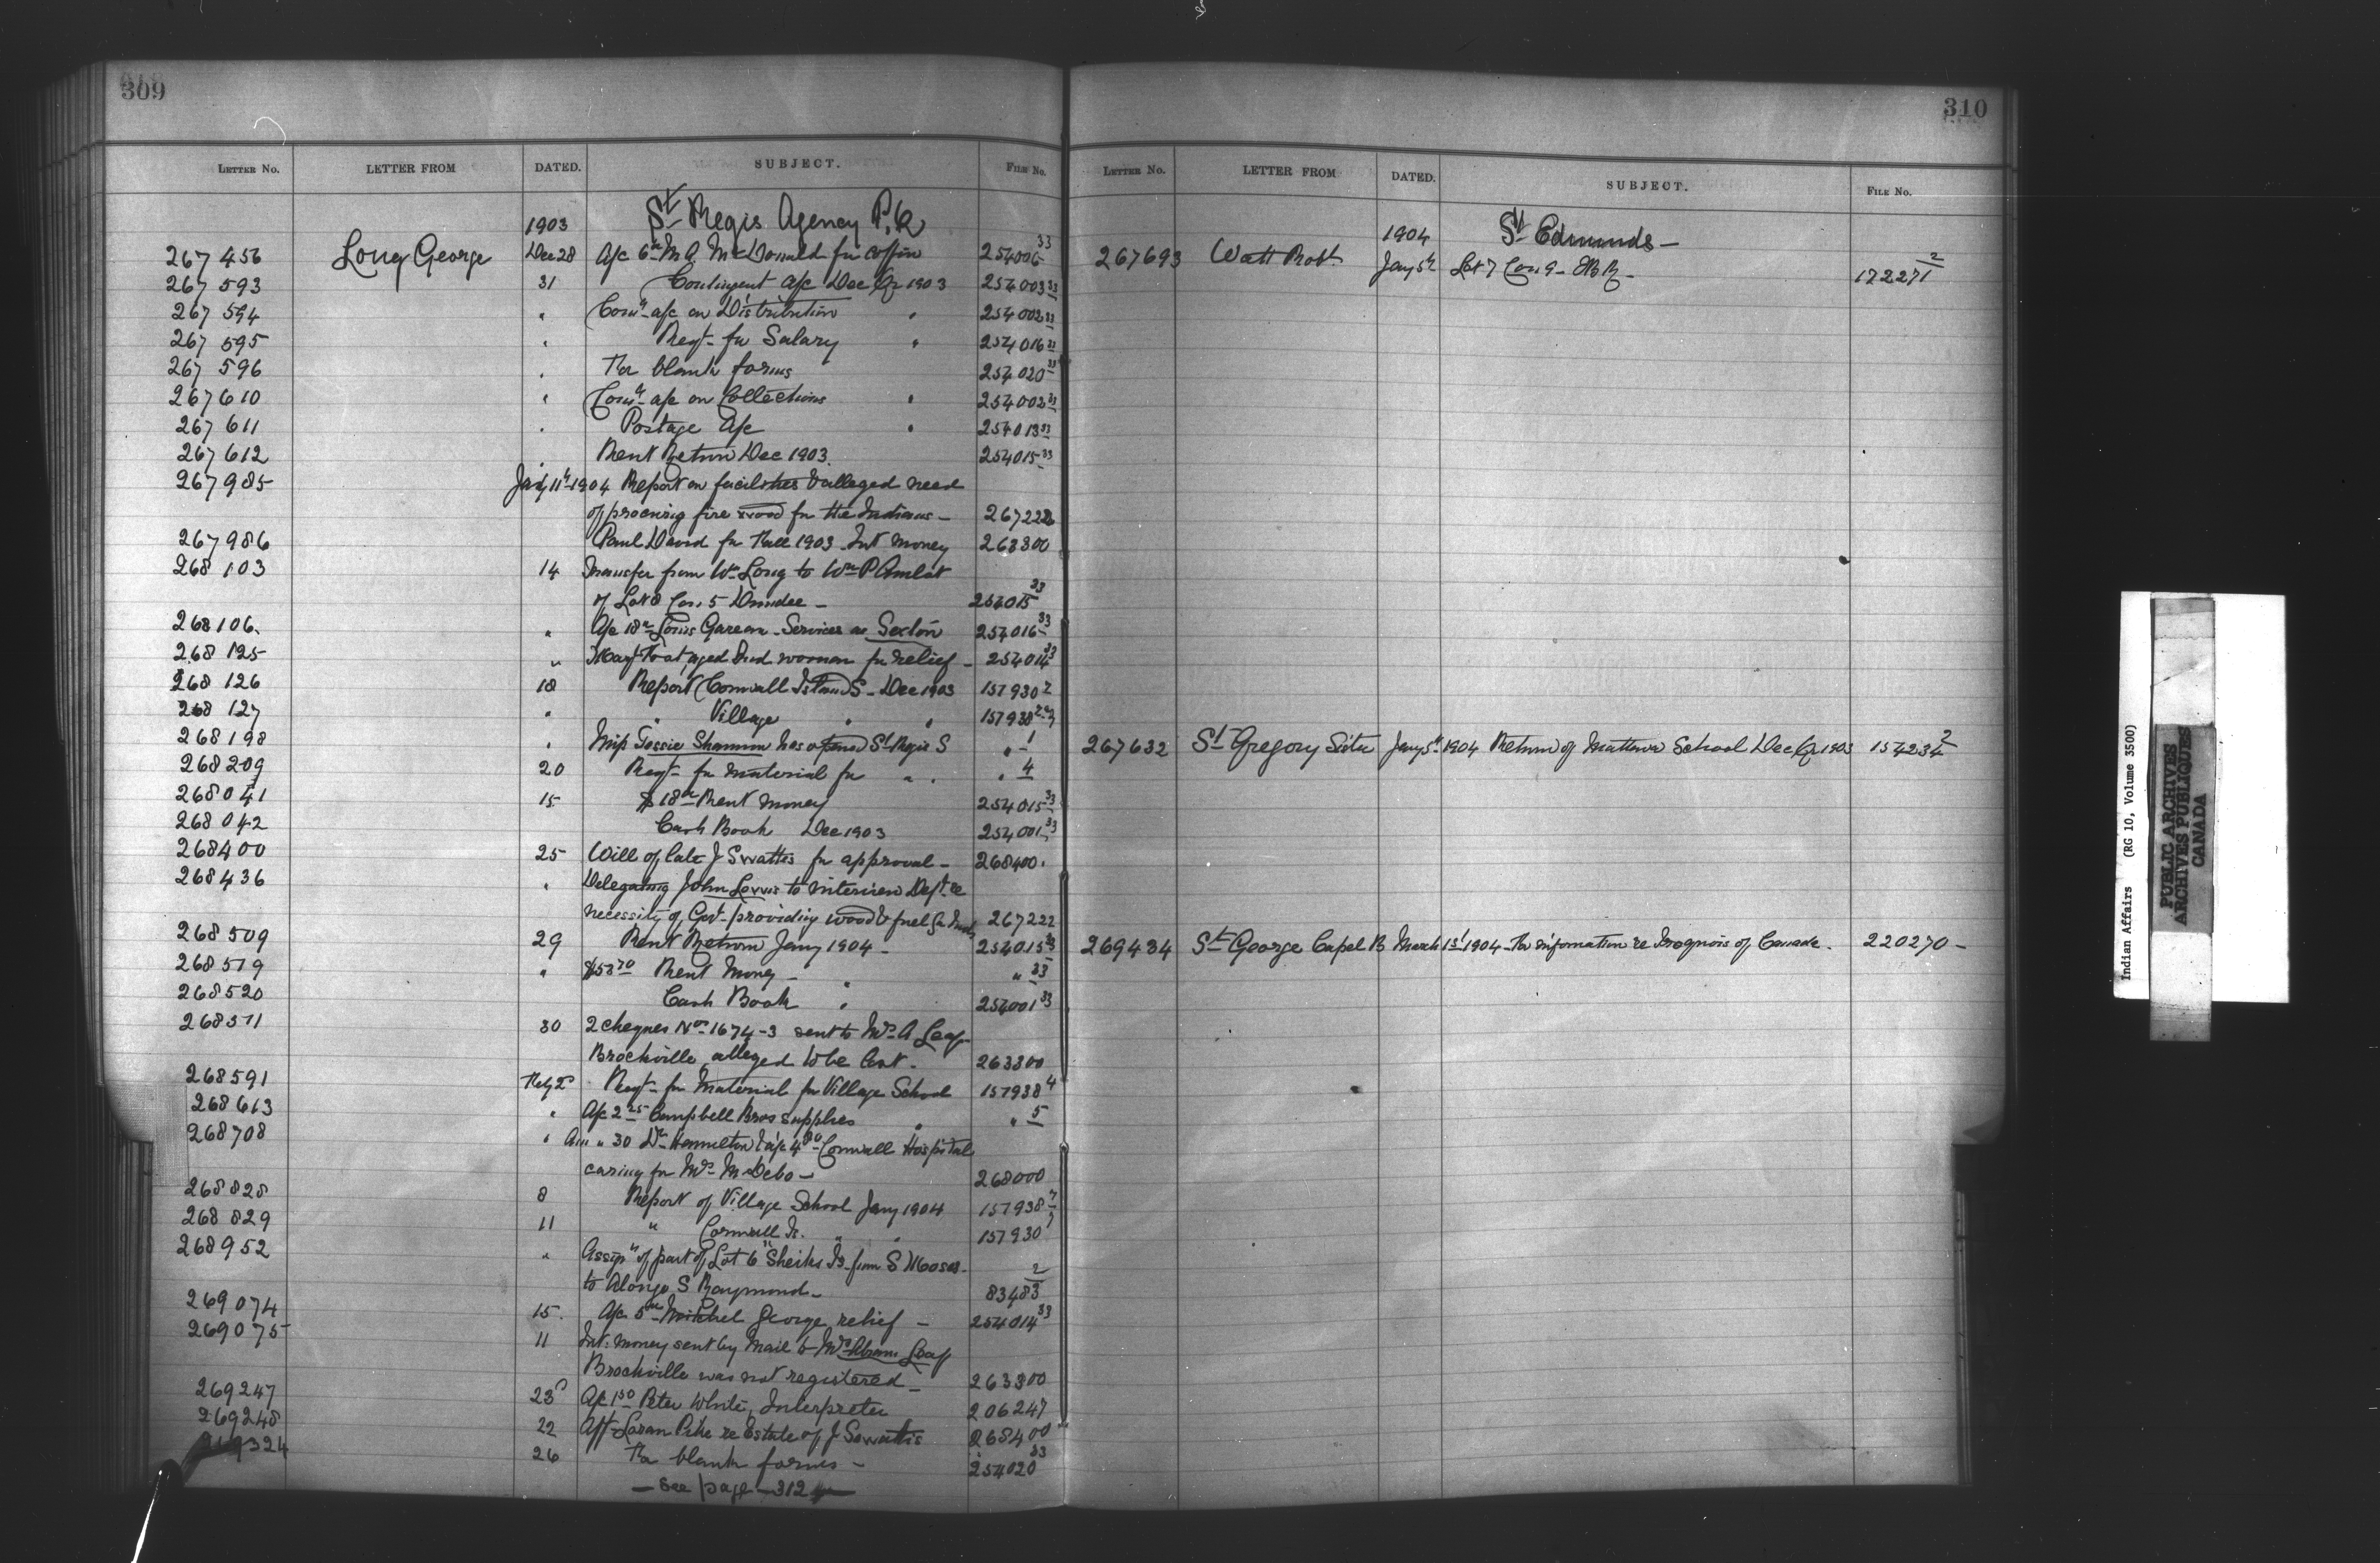 309
LETTER No. LETTER FROM DATED. SUBJECT. FILE No.
1903 St Regis Agency P.Q
267456 Long George Dec 28 A/c 6 00 M A McDonald for coffin 254006 33
267593 31 Contingent a/c Dec Qr 1903 254003 33
267594 " Comn a/c on Distribution " 254002 33
267595 " Reqt for Salary " 254016 33
267596 " For blank forms 254020 33
267610 " Comn a/c on Collections " 254002 33
267611 " Postage A/c " 254013 33
267612 " Rent Return Dec 1903 254015 33
267985 Jany 11th 1904 Report on facilities & alleged need
of procuring fire wood for the Indians - 267222
267986 Paul David for Fall 1903 Int money 263300
268103 14 Transfer from Wm Long to Wm P
of Lot 8 Con. 5 Dundee - 254015 33
268106 " A/c 18 Louis Services as Sexton 254016 33
268125 " Mary aged Ind. woman for relief - 254014 33
268126 18 Report Cornwall Island S - Dec 1903 157930 2
268127 " " Village " " 157938
268198 " Miss Shannon has opened St Regis S " 1
268209 20 Reqt for material for " " " 4
268041 15 $18 Rent money 254015 33
268042 Cash Book Dec 1903 254001 33
268400 25 Will of late J Swattis for approval - 268400
268436 " Delegating John to interview Dept re
necessity of Govt providing wood & fuel for Inds 267222
268509 29 Rent Return Jany 1904 - 254015 33
268519 " $58 70 Rent Money - " " 33
268520 Cash Book " 254001 33
268571 30 2 cheques Nos 1674-3 sent to Mrs A Leaf
Brockville, alleged to be lost. 263300
268591 Feby 2 Reqt for Material for Village School 157938 4
268613 " A/c 2 25 Campbell Bros supplies " " 5
268708 " " 30 Dr Hamilton & a/c 4 50 Cornwall Hospital
caring for Mrs M Debo - 268000
268828 8 Report of Village School Jany 1904 157938
268829 11 " Cornwall Is. " " 157930
268952 " Assign of part of Lot 6 "Sheiks Is. from S Moses
to Alonzo S Raymond - 83483 2
269074 15. A/c 5 00 Mitchel George relief - 254014 33
269075 11 Int. money sent by mail to Mrs Abram Leaf
Brockville was not registered - 263300
269247 23 A/c 1 50 Peter White, Interpreter 206247
269248 22 Afft Pike re Estate of J Sawattis 268400
324 26 For blank forms - 254020 33
- See page - 312
310
LETTER No. LETTER FROM DATED. SUBJECT. FILE No.
1904 St Edmunds -
267693 Watt Robt Jany 5th Lot 7 Con 9 - EBR - 172271 2
267632 St Gregory Sister Jany 5th 1904 Return of Mattawa School Dec Qr 1903 154234 2
269434 St George Capel B March 1st 1904 - For information re Iroquois of Canada. 220270 -
Indian Affairs (RG 10, Volume 3500)
PUBLIC ARCHIVES
ARCHIVES PUBLIQUES
CANADA